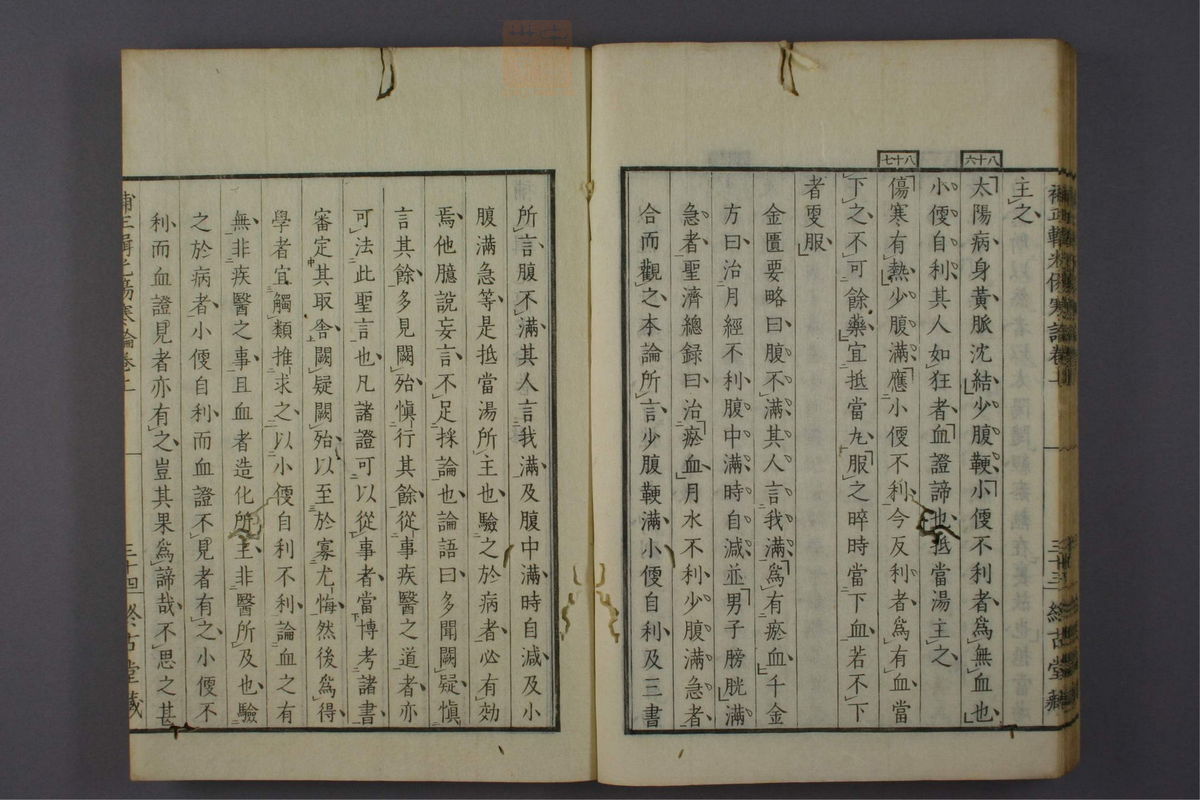 主之
八十六
太陽病身黃脈沈結少腹鞕小便不利者為無血也
小便自利其人如狂者血證諦也抵當湯主之
八十七
傷寒有熱少腹滿應小便不利今反利者為有血當
下之不可餘藥宜抵當丸服之晬時當下血若不下
者更服
金匱要略曰腹不滿其人言我滿為有瘀血千金
方曰治月經不利腹中滿時自減並男子膀胱滿
急者聖濟總録曰治瘀血月水不利少腹滿急者
合而觀之本論所言少腹鞕滿小便自利及三書
三十三
所言腹不滿其人言我滿及腹中滿時自減及小
腹滿急等是抵當湯所主也驗之於病者必有効
焉他臆說妄言不足採論也論語曰多聞闕疑慎
言其餘多見闕殆慎行其餘從事疾醫之道者亦
可法此聖言也凡諸證可以從事者當博考諸書
審定其取舍闕疑闕殆以至於寡尤悔然後為得
學者宜觸類推求之以小便自利不利論血之有
無非疾醫之事且血者造化所主非醫所及也驗
之於病者小便自利而血證不見者有之小便不
利而血證見者亦有之豈其果為諦哉不思之甚
三十四